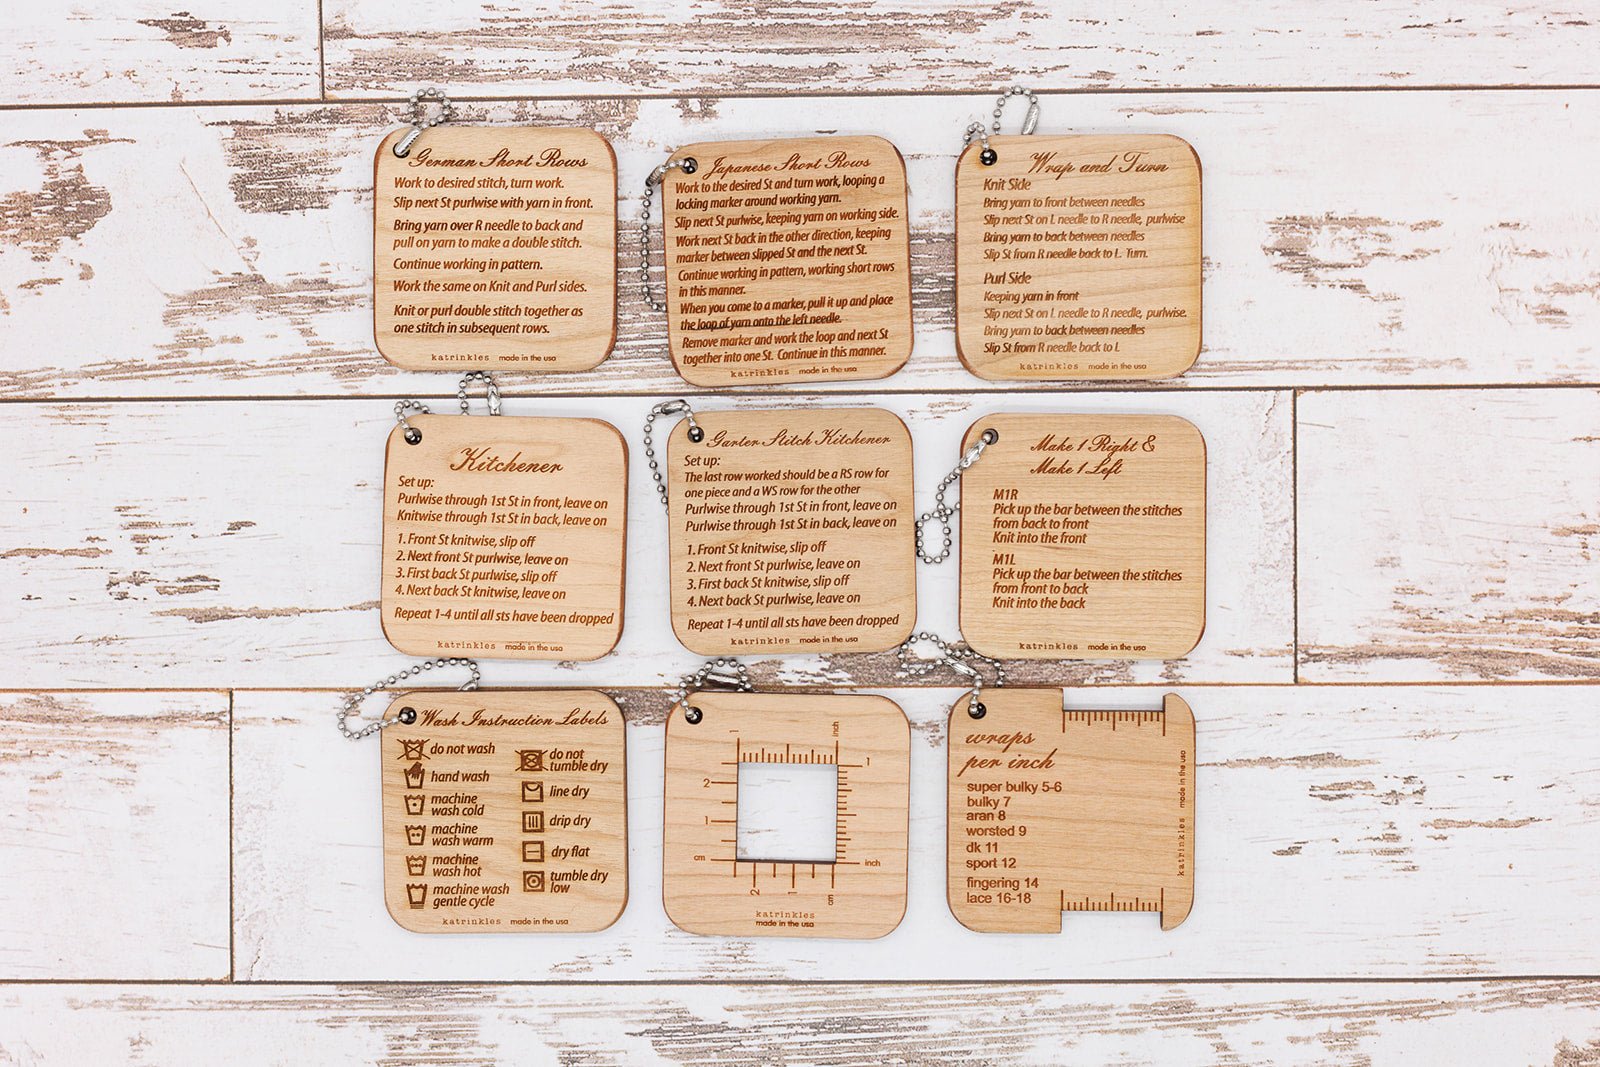 German Short Rows
Work to desired stitch, turn work.
Slip next St purlwise with yarn in front.
Bring yarn over R needle to back and
pull on yarn to make a double stitch.
Continue working in pattern.
Work the same on Knit and Purl sides.
Knit or purl double stitch together as
one stitch in subsequent rows.
katrinkles made in the usa
Japanese Short Rows
Work to the desired St and turn work, looping a
locking marker around working yarn.
Slip next St purlwise, keeping yarn on working side.
Work next St back in the other direction, keeping
marker between slipped St and the next St.
Continue working in pattern, working short rows
in this manner.
When you come to a marker, pull it up and place
the loop of yarn onto the left needle.
Remove marker and work the loop and next St
together into one St. Continue in this manner.
katrinkles made in the usa
Wrap and Turn
Knit Side
Bring yarn to front between needles
Slip next St on L needle to R needle, purlwise
Bring yarn to back between needles
Slip St from R needle back to L. Turn.
Purl Side
Keeping yarn in front
Slip next St on L needle to R needle, purlwise.
Bring yarn to back between needles
Slip St from R needle back to L
katrinkles made in the usa
Kitchener
Set up:
Purlwise through 1st St in front, leave on
Knitwise through 1st St in back, leave on
1. Front St knitwise, slip off
2. Next front St purlwise, leave on
3. First back St purlwise, slip off
4. Next back St knitwise, leave on
Repeat 1-4 until all sts have been dropped
katrinkles made in the usa
Garter Stitch Kitchener
Set up:
The last row worked should be a RS row for
one piece and a WS row for the other
Purlwise through 1st St in front, leave on
Purlwise through 1st St in back, leave on
1. Front St knitwise, slip off
2. Next front St purlwise, leave on
3. First back St knitwise, slip off
4. Next back St purlwise, leave on
Repeat 1-4 until all sts have been dropped
katrinkles made in the usa
Make 1 Right &
Make 1 Left
M1R
Pick up the bar between the stitches
from back to front
Knit into the front
M1L
Pick up the bar between the stitches
from front to back
Knit into the back
katrinkles made in the usa
Wash Instruction Labels
do not wash
hand wash
machine
wash cold
machine
wash warm
machine
wash hot
machine wash
gentle cycle
do not
tumble dry
line dry
drip dry
dry flat
tumble dry
low
katrinkles made in the usa
1
inch
2
1
1
cm
inch
2
1
cm
katrinkles
made in the usa
wraps
per inch
super bulky 5-6
bulky 7
aran 8
worsted 9
dk 11
sport 12
fingering 14
lace 16-18
katrinkles made in the usa